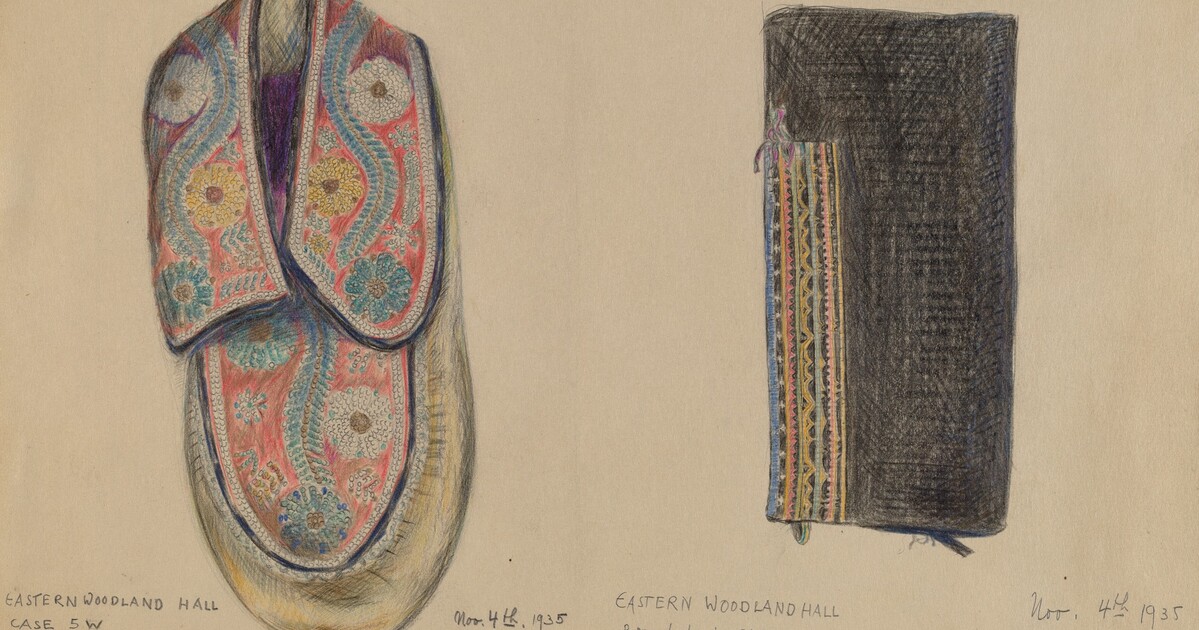 EASTERN WOODLAND HALL
CASE 5W
Nov. 4th, 1935
EASTERN WOODLAND HALL
Nov. 4th 1935